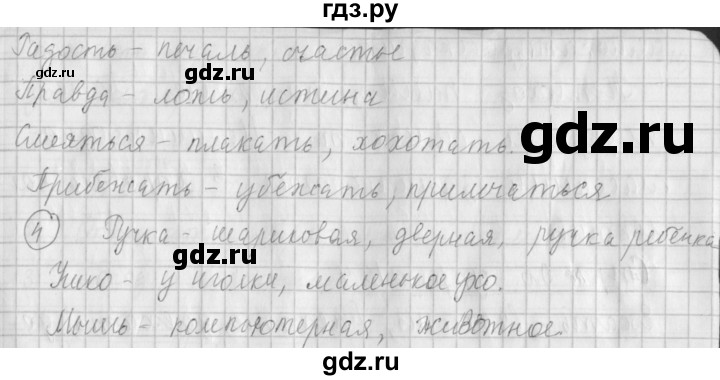 гдз.ру
Радость – печаль, счастье
Правда – ложь, истина
Смеяться – плакать, хохотать.
Прибежать – убежать, примчаться
4 Ручка – шариковая, дверная, ручка ребёнка
Ушко – у иголки, маленькое ухо.
Мышь – компьютерная, животное.
gdz.ru
gdz.ru
gdz.ru
gdz.ru
gdz.ru
gdz.ru
gdz.ru
gdz.ru